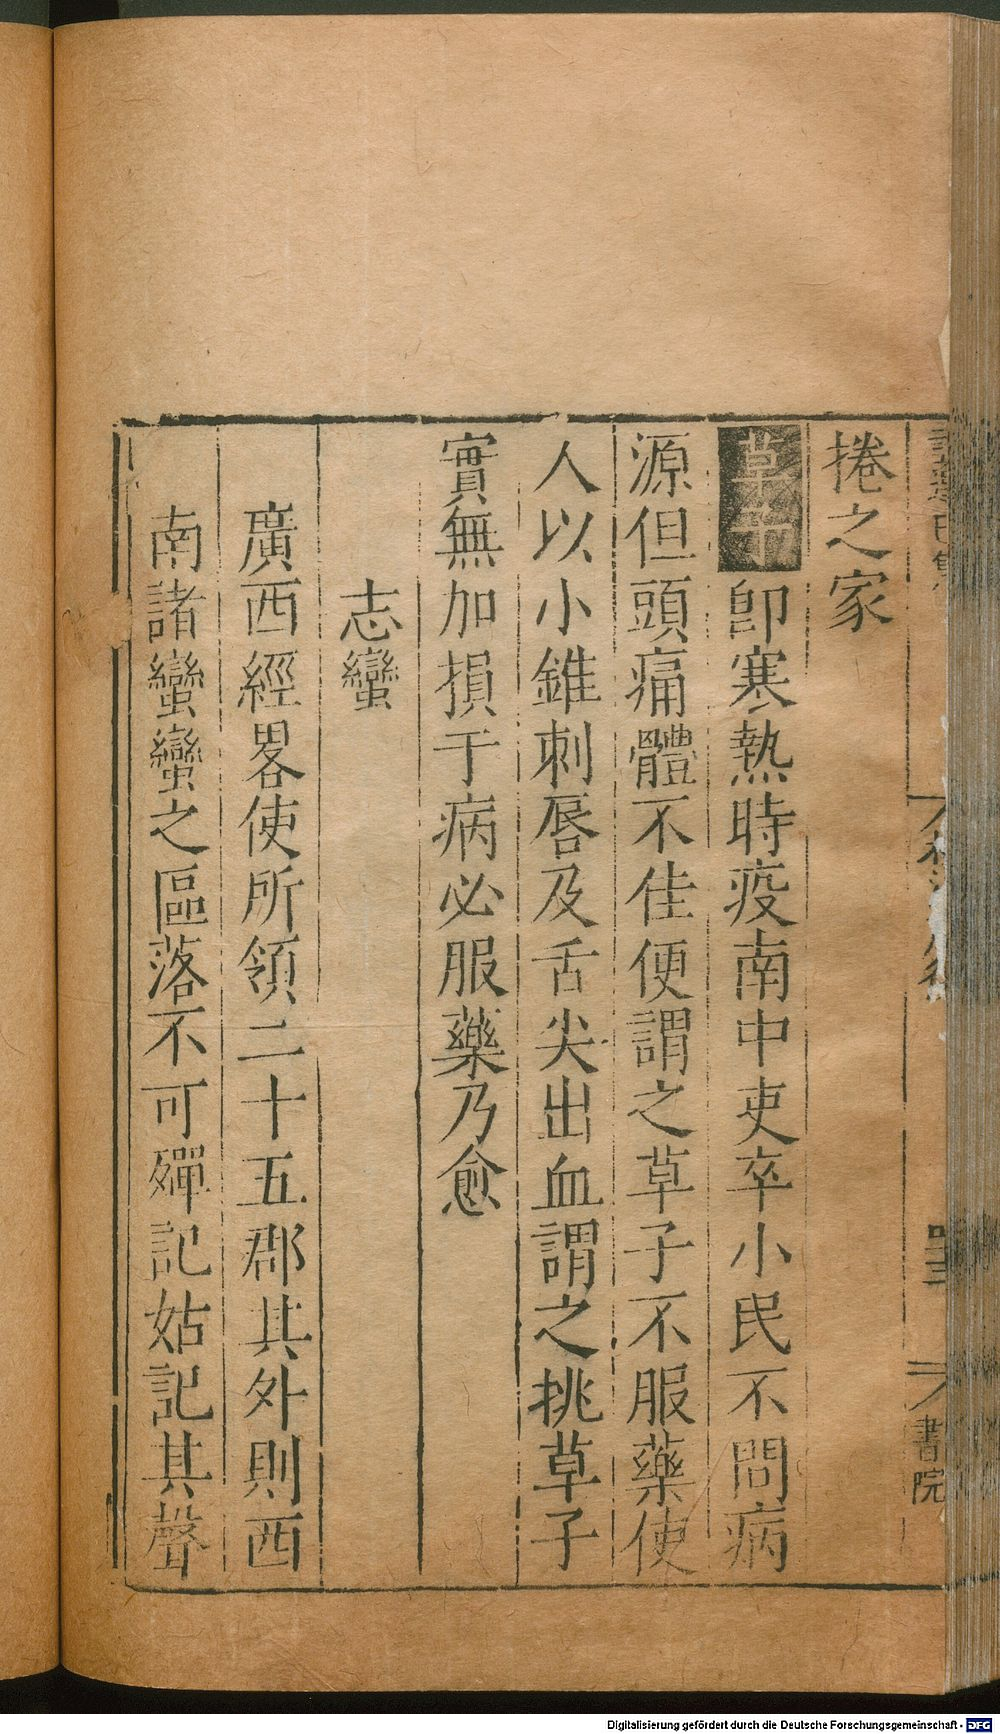 捲之家
草子即寒熱時疫南中吏卒小民不問病
源但頭痛體不佳便謂之草子不服藥使
人以小錐刺唇及舌尖出血謂之挑草子
實無加損于病必服藥乃愈
志蠻
廣西經畧使所領二十五郡其外則西
南諸蠻蠻之區落不可殫記姑記其聲
書院
Digitalisierung gefördert durch die Deutsche Forschungsgemeinschaft - DFG